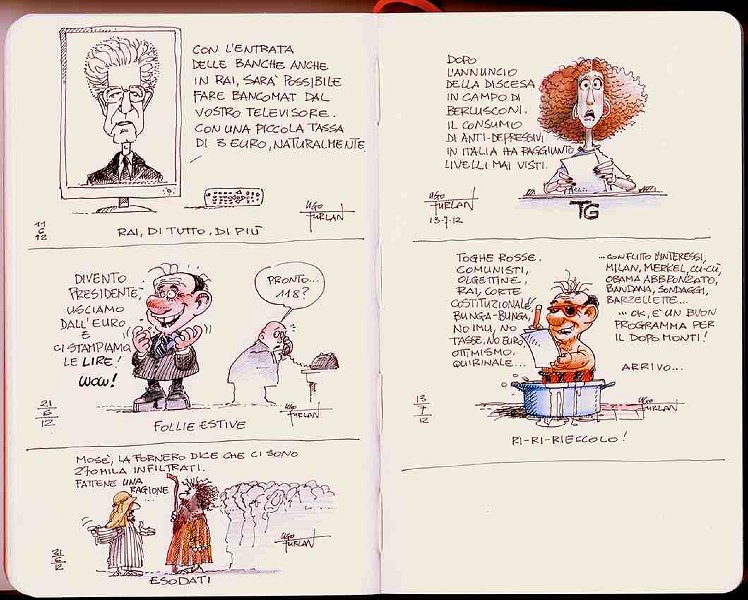 CON L'ENTRATA
DELLE BANCHE ANCHE
IN RAI, SARÀ POSSIBILE
FARE BANCOMAT DAL
VOSTRO TELEVISORE.
CON UNA PICCOLA TASSA
DI 3 EURO, NATURALMENTE
UGO
FURLAN
11
6
12
RAI, DI TUTTO, DI PIÙ
DIVENTO
PRESIDENTE,
USCIAMO
DALL'EURO
E
CI STAMPIAMO
LE LIRE!
WOW!
PRONTO...
118?
21
6
12
UGO
FURLAN
FOLLIE ESTIVE
MOSÈ, LA FORNERO DICE CHE CI SONO
270MILA INFILTRATI.
FATTENE UNA
RAGIONE...
UGO
FURLAN
12
ESODATI
DOPO
L'ANNUNCIO
DELLA DISCESA
IN CAMPO DI
BERLUSCONI.
IL CONSUMO
DI ANTI-DEPRESSIVI
IN ITALIA HA RAGGIUNTO
LIVELLI MAI VISTI.
UGO
FURLAN
13-7-12
TG
TOGHE ROSSE.
COMUNISTI,
OLGETTINE,
RAI, CORTE
COSTITUZIONALE
BUNGA-BUNGA,
NO IMU, NO
TASSE, NO EURO
OTTIMISMO.
QUIRINALE...
...CONFLITTO D'INTERESSI,
MILAN, MERKEL, CU-CÙ,
OBAMA ABBRONZATO,
BANDANA, SONDAGGI,
BARZELLETTE...
...OK, È UN BUON
PROGRAMMA PER
IL DOPO MONTI!
ARRIVO...
13
7
12
UGO
FURLAN
RI-RI-RIECCOLO!